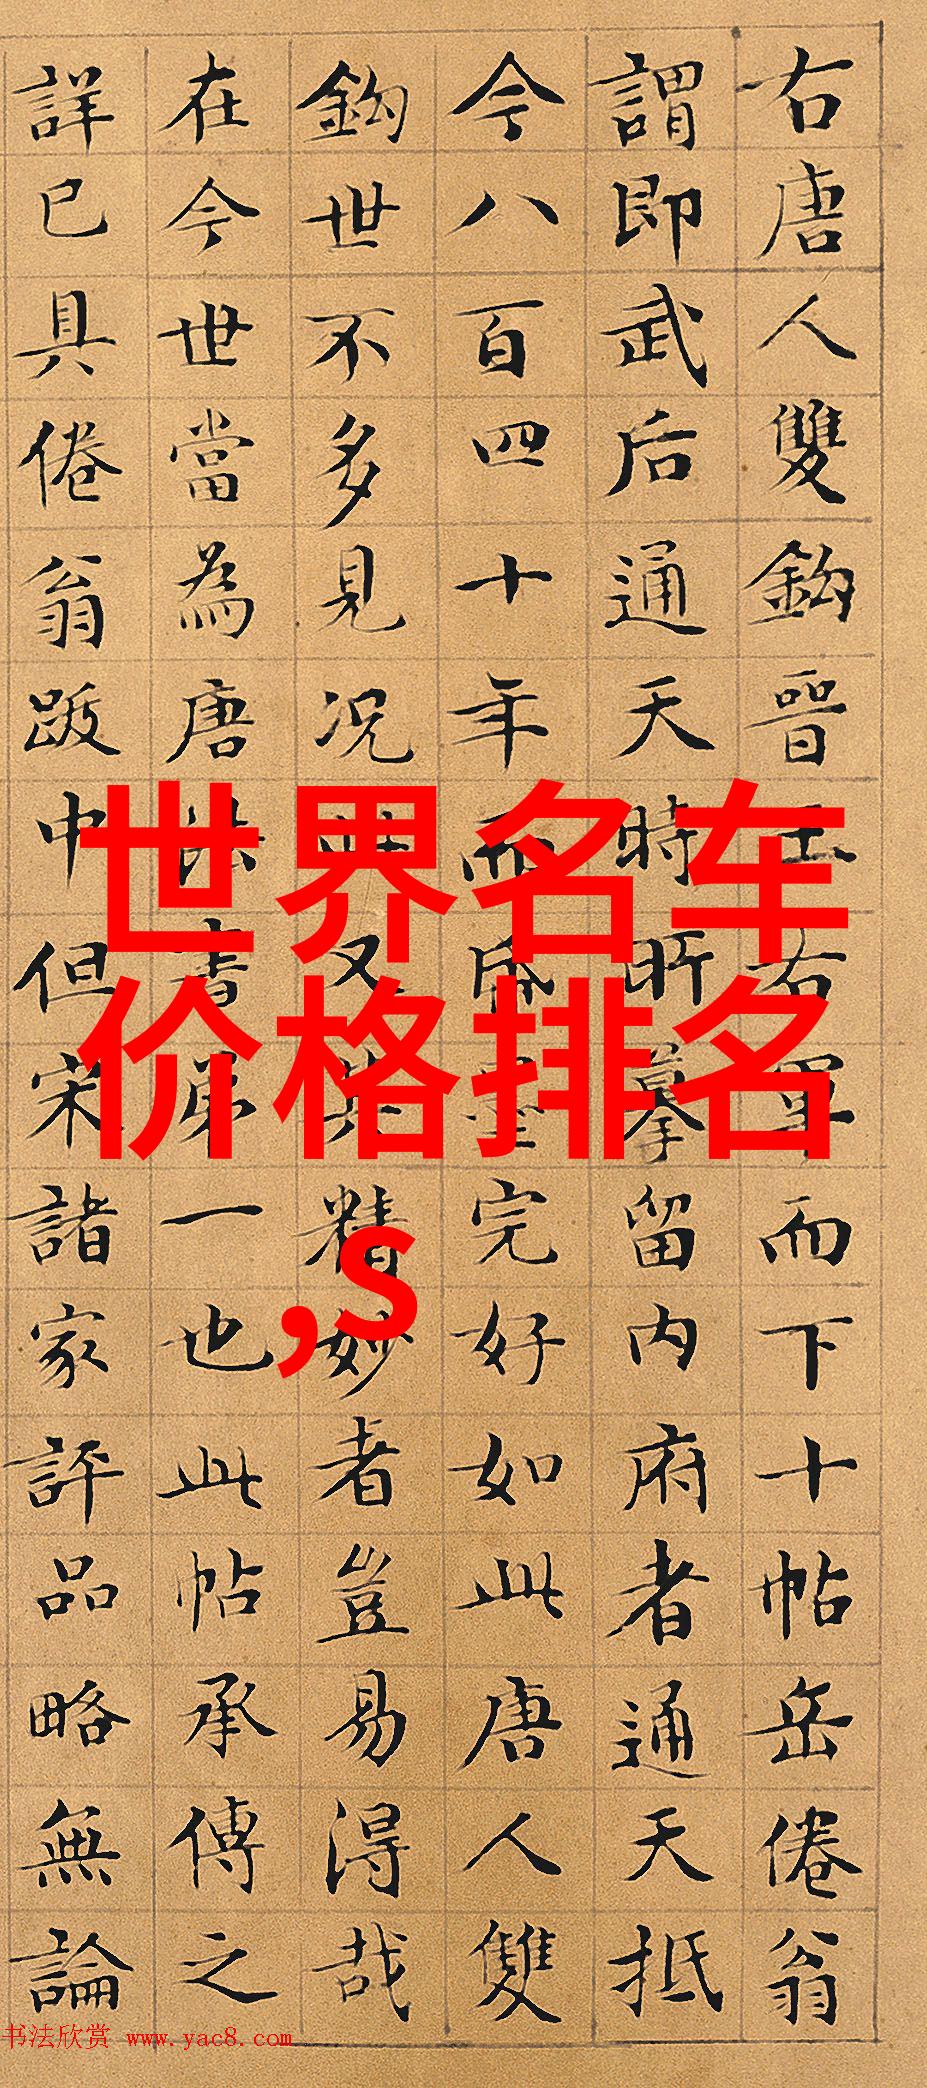 右唐人雙鈎晉王右軍而下十帖岳倦翁
謂即武后通天時所摹留内府者通天抵
今八百四十年而紙墨完好如此唐人雙
鈎世不多見况此又其精妙者豈易得哉
在今世當為唐法書第一也此帖承傳之
詳已具倦翁跋中但宋諸家評品略無論
世界名车
价格排名
,s
书法欣赏 www.yac8.com